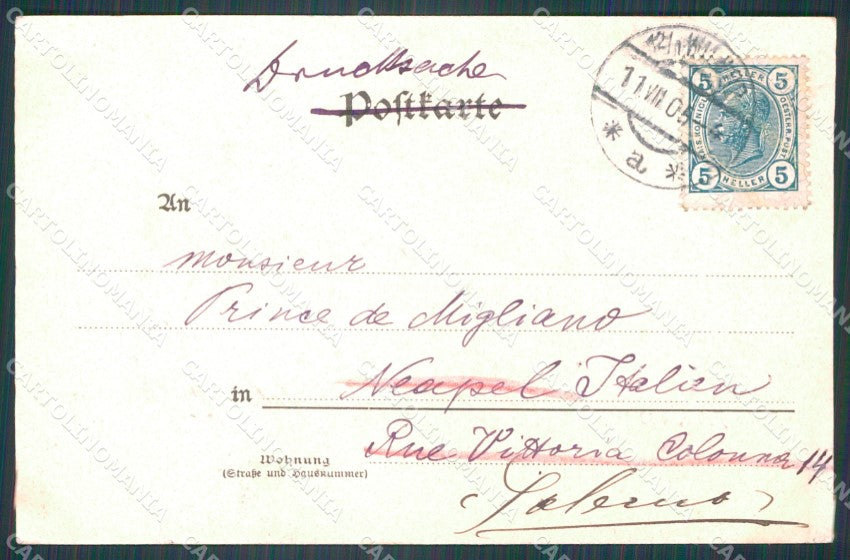 Drucksache
Postkarte
12/1 WIEN
11.VII.05
* a *
5 HELLER 5
KAIS. KÖNIGL. OESTERR. POST
5 HELLER 5
An
Monsieur
Prince de Migliano
in Neapel Italien
Wohnung
(Straße und Hausnummer)
Rue Vittoria Colonna 14
Salerno
CARTOLINOMANIA